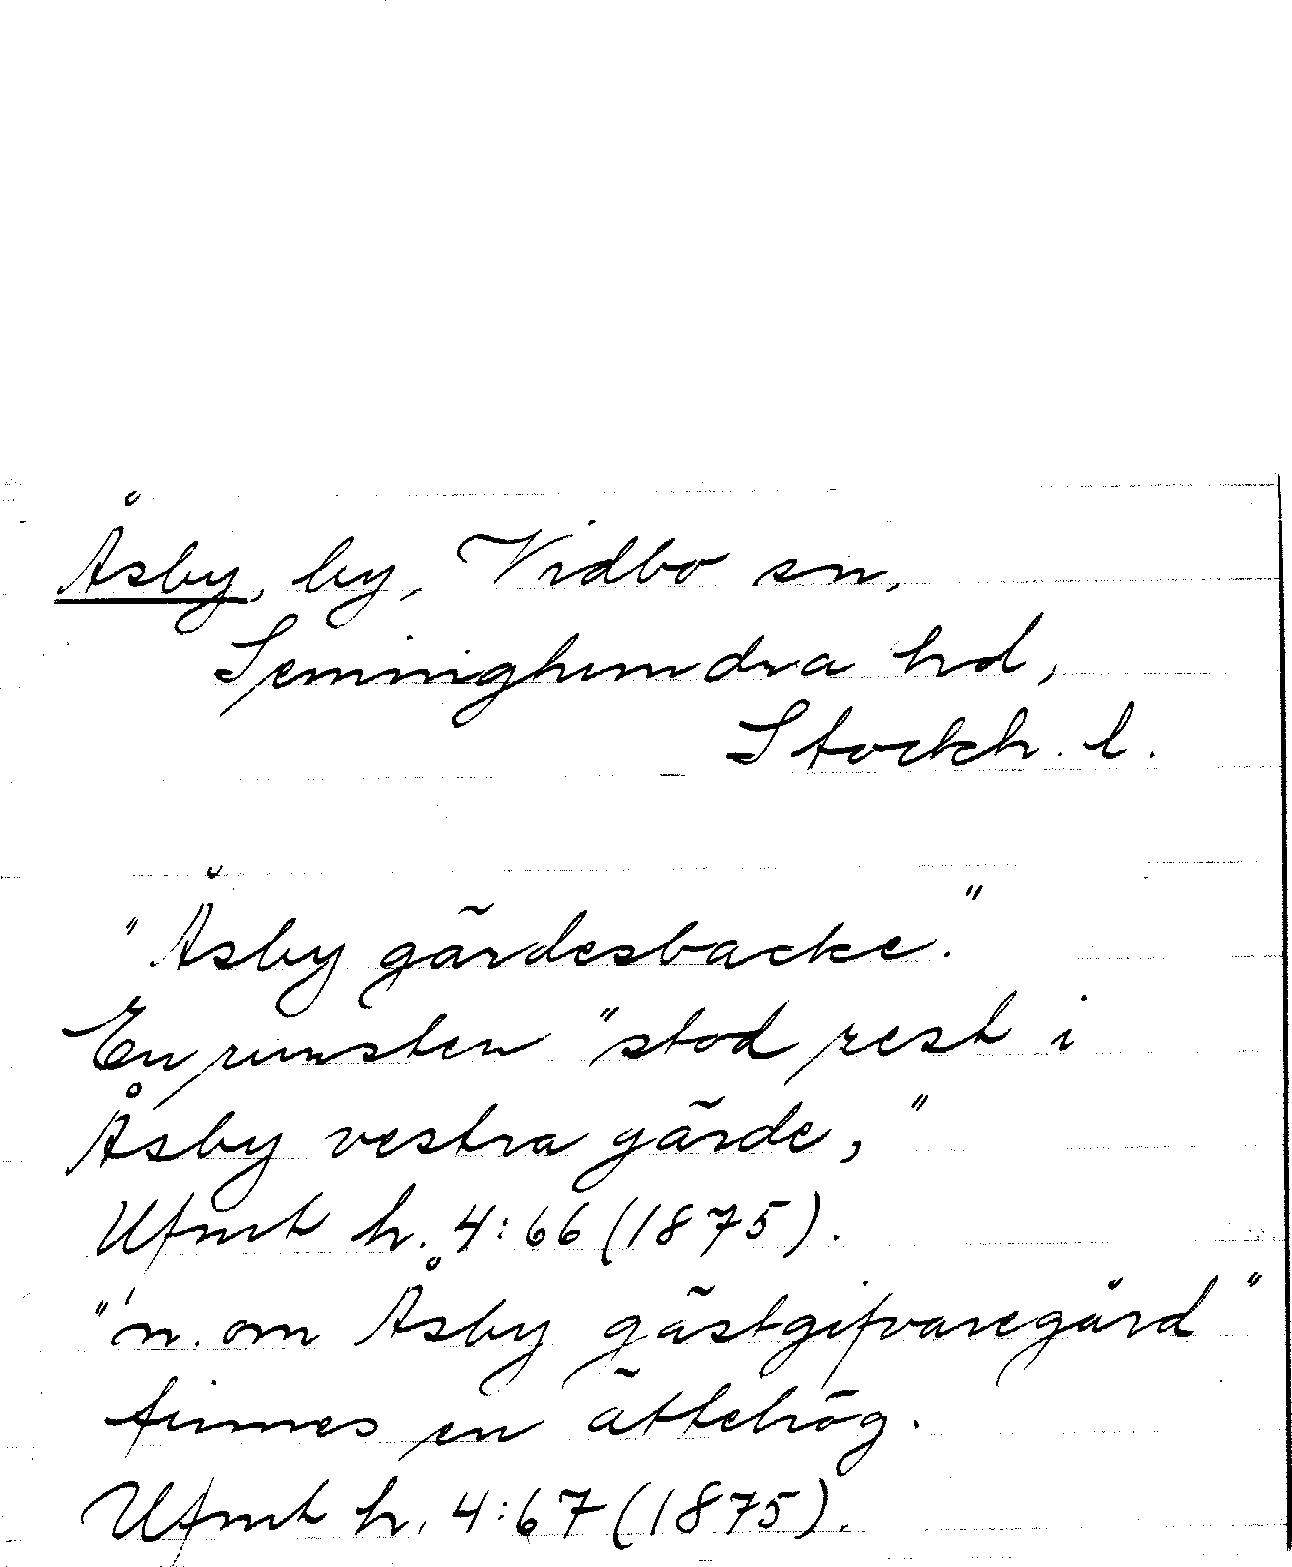 Åsby, by, Vidbo sn,
Seminghundra hd,
Stockh. l.
"Åsby gärdesbacke."
En runsten "stod rest i
Åsby vestra gärde,"
Ufmt h. 4:66 (1875).
"n. om Åsby gästgifvaregård"
finnes en ättehög.
Ufmt h. 4:67 (1875).